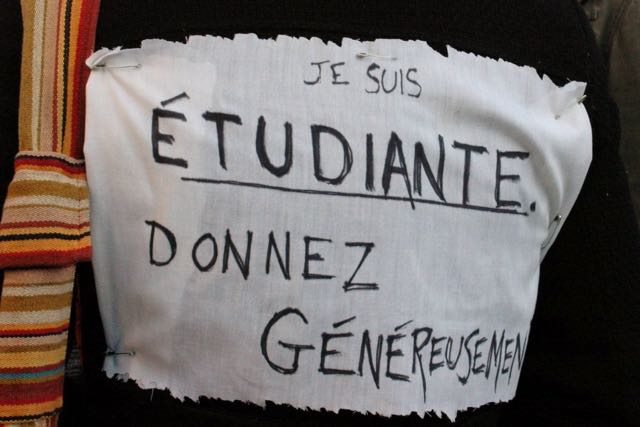 JE SUIS
ÉTUDIANTE.
DONNEZ
GÉNÉREUSEMEN